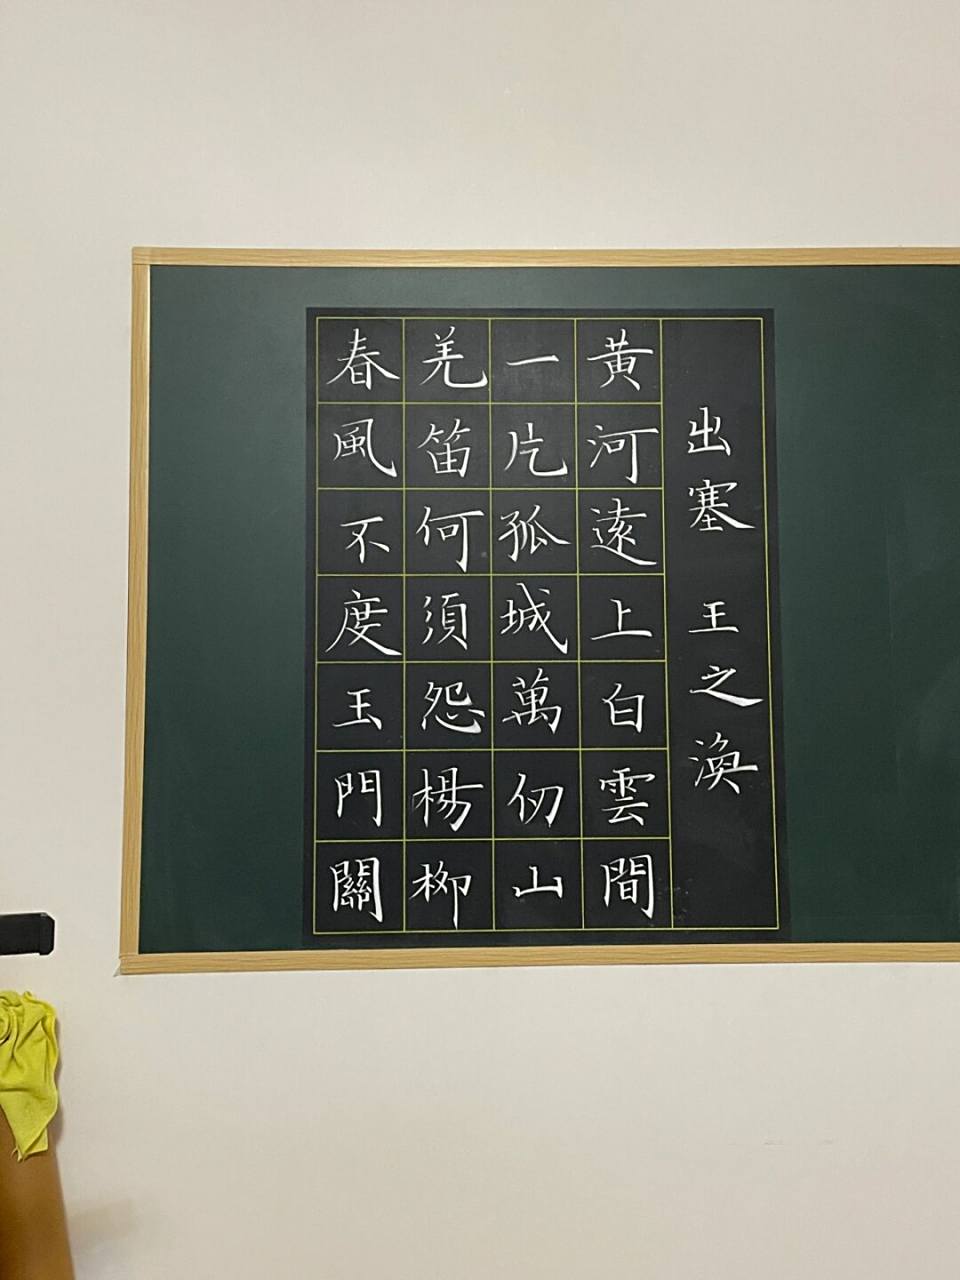 出塞 王之渙
黃河遠上白雲間
一片孤城萬仞山
羌笛何須怨楊柳
春風不度玉門關